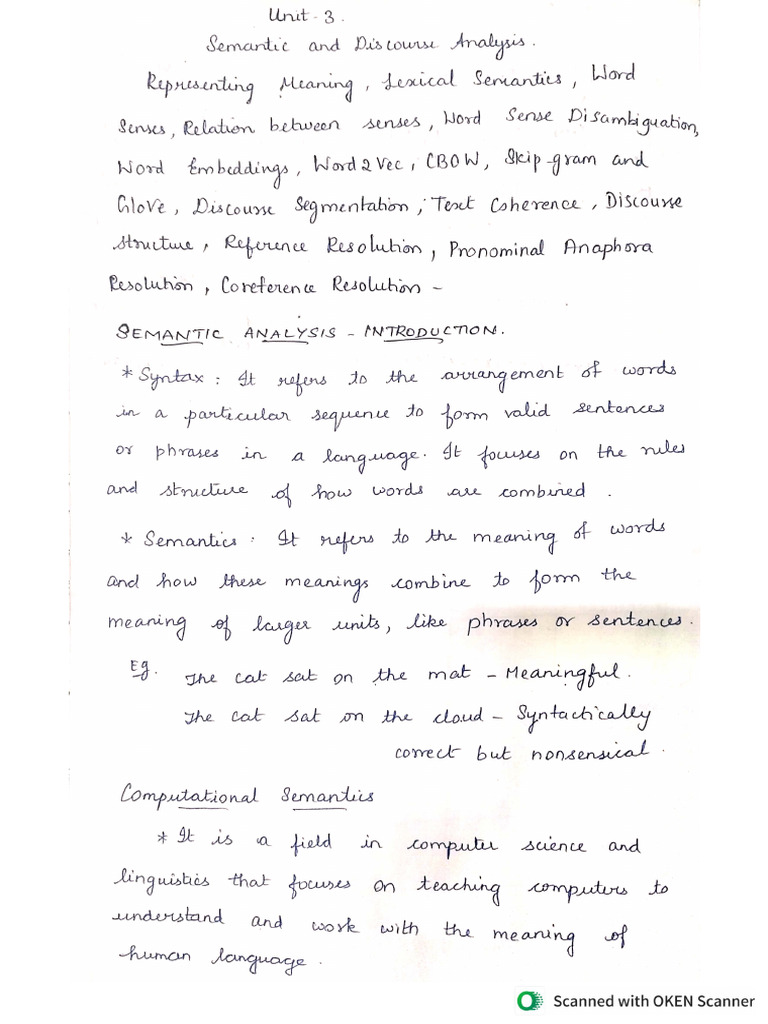 Unit - 3.
Semantic and Discourse Analysis.
Representing Meaning, Lexical Semantics, Word
Senses, Relation between senses, Word Sense Disambiguation,
Word Embeddings, Word2Vec, CBOW, Skip-gram and
GloVe, Discourse Segmentation, Text Coherence, Discourse
structure, Reference Resolution, Pronominal Anaphora
Resolution, Coreference Resolution -
SEMANTIC ANALYSIS - INTRODUCTION.
* Syntax : It refers to the arrangement of words
in a particular sequence to form valid sentences
or phrases in a language. It focuses on the rules
and structure of how words are combined.
* Semantics : It refers to the meaning of words
and how these meanings combine to form the
meaning of larger units, like phrases or sentences.
Eg. The cat sat on the mat - Meaningful.
The cat sat on the cloud - Syntactically
correct but nonsensical.
Computational Semantics
* It is a field in computer science and
linguistics that focuses on teaching computers to
understand and work with the meaning of
human language.
Scanned with OKEN Scanner